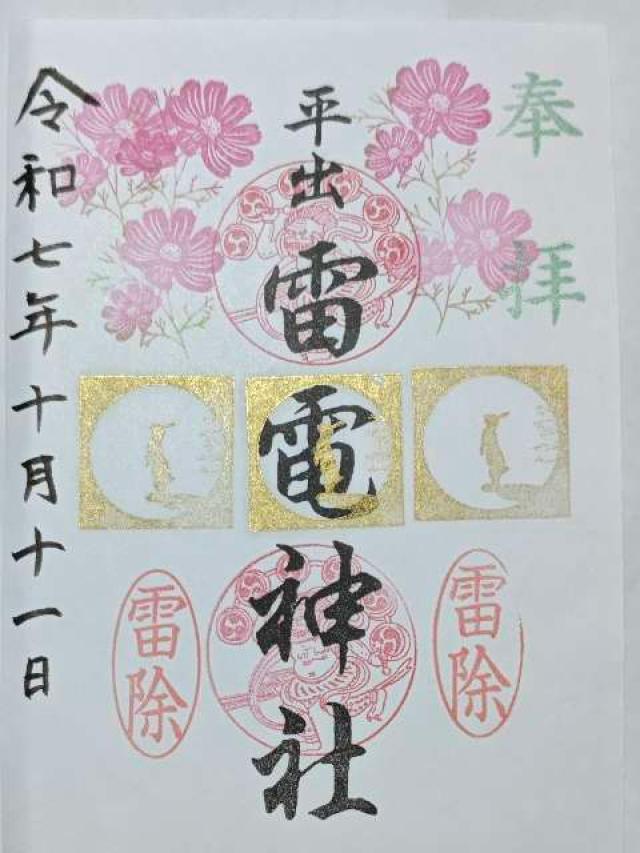 奉拝
平出雷電神社
雷除
雷除
令和七年十月十一日